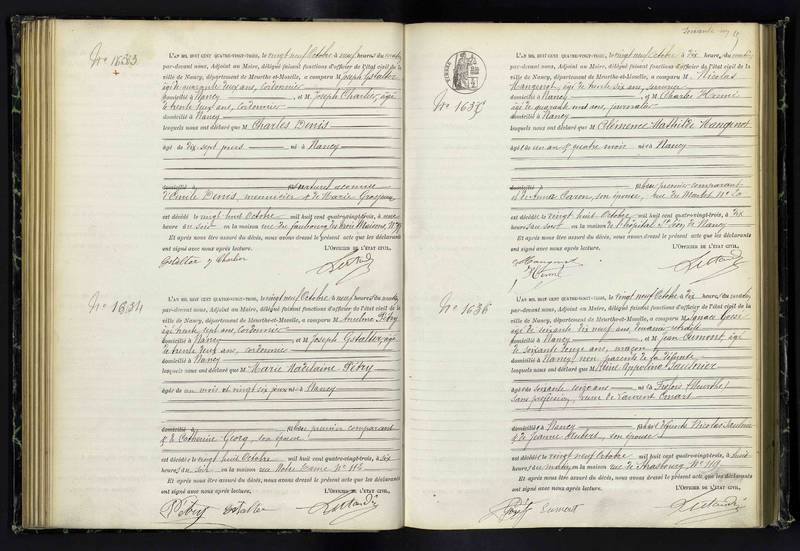 Nº 1633
L'AN MIL HUIT CENT QUATRE-VINGT-TROIS, le vingt neuf Octobre à neuf heures du matin,
par-devant nous, Adjoint au Maire, délégué faisant fonctions d'officier de l'état civil de la
ville de Nancy, département de Meurthe-et-Moselle, a comparu M Joseph Gstalter
âgé de quarante deux ans, cordonnier
domicilié à Nancy, et M Joseph Charlier, âgé
de trente deux ans, cordonnier
domicilié à Nancy
lesquels nous ont déclaré que M Charles Denis
âgé de dix sept jours né à Nancy
domicilié à fils naturel reconnu
d'Emile Denis, menuisier & de Marie
est décédé le vingt huit Octobre mil huit cent quatre-vingt-trois, à onze
heures du soir en la maison rue du faubourg des trois Maisons, Nº
Et après nous être assuré du décès, nous avons dressé le présent acte que les déclarants
ont signé avec nous après lecture. L'OFFICIER DE L'ÉTAT CIVIL,
Nº 1634
L'AN MIL HUIT CENT QUATRE-VINGT-TROIS, le vingt neuf Octobre à neuf heures du matin,
par-devant nous, Adjoint au Maire, délégué faisant fonctions d'officier de l'état civil de la
ville de Nancy, département de Meurthe-et-Moselle, a comparu M Anselme Pétry
âgé de trente sept ans, Cordonnier
domicilié à Nancy, et M Joseph Gstalter, âgé
de trente deux ans, cordonnier
domicilié à Nancy
lesquels nous ont déclaré que M Marie Madelaine Pétry
âgée de un mois et vingt six jours née à Nancy
domicilié à fille du premier comparant
& de Catherine Georg, son épouse
est décédée le vingt huit Octobre mil huit cent quatre-vingt-trois, à six
heures du soir en la maison rue Notre Dame Nº 113
Et après nous être assuré du décès, nous avons dressé le présent acte que les déclarants
ont signé avec nous après lecture. L'OFFICIER DE L'ÉTAT CIVIL,
Pétry Gstalter
soixante
Nº 1635
L'AN MIL HUIT CENT QUATRE-VINGT-TROIS, le vingt neuf Octobre à dix heures du matin,
par-devant nous, Adjoint au Maire, délégué faisant fonctions d'officier de l'état civil de la
ville de Nancy, département de Meurthe-et-Moselle, a comparu M Nicolas
Mangenot, âgé de trente six ans,
domicilié à Nancy, et M Charles Humé
âgé de quarante ans, journalier
domicilié à Nancy
lesquels nous ont déclaré que M Clémence Mathilde Mangenot
âgée de un an & quatre mois née à Nancy
domicilié à fille du premier comparant
et d'Emma Caron, son épouse, rue du Montet Nº 20
est décédée le vingt huit Octobre mil huit cent quatre-vingt-trois, à dix
heures du soir en la maison de l'hôpital St Léon de Nancy
Et après nous être assuré du décès, nous avons dressé le présent acte que les déclarants
ont signé avec nous après lecture. L'OFFICIER DE L'ÉTAT CIVIL,
Mangenot
Humé
Nº 1636
L'AN MIL HUIT CENT QUATRE-VINGT-TROIS, le vingt neuf Octobre à dix heures du matin,
par-devant nous, Adjoint au Maire, délégué faisant fonctions d'officier de l'état civil de la
ville de Nancy, département de Meurthe-et-Moselle, a comparu M Ignace
âgé de soixante dix neuf ans, retraité
domicilié à Nancy, et M Jean Cumont, âgé
de soixante douze ans, maçon
domicilié à Nancy, non parents de la défunte
lesquels nous ont déclaré que M Reine Appoline Saulnier
âgée de soixante seize ans née à Frolois (Meurthe)
sans profession, veuve de Laurent Conart
domiciliée à Nancy fille de défunts Nicolas Saulnier
& de Jeanne Hubert, son épouse
est décédée le vingt neuf Octobre mil huit cent quatre-vingt-trois, à huit
heures du matin en la maison rue de Strasbourg Nº 119
Et après nous être assuré du décès, nous avons dressé le présent acte que les déclarants
ont signé avec nous après lecture. L'OFFICIER DE L'ÉTAT CIVIL,
Cumont